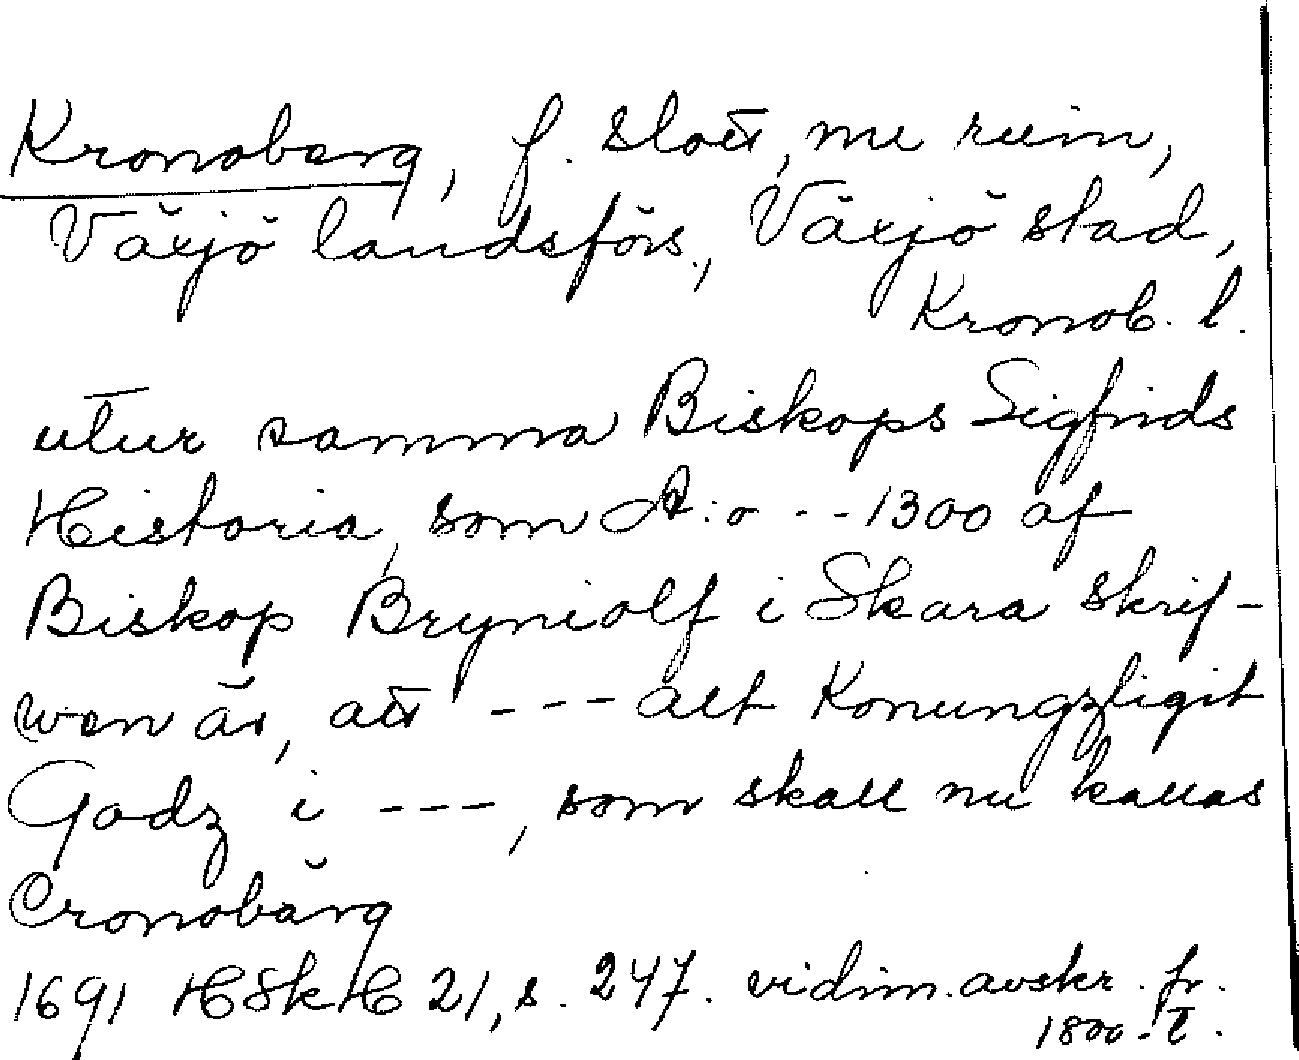 Kronoberg, f. slott, nu ruin,
Växjö landsförs., Växjö stad,
Kronob. l.
utur samma Biskops Sigfrids
Historia, som A:o --- 1300 af
Biskop Bryniolf i Skara skrif-
wen är, att --- alt Konungzligit
Godz i ---, som skall nu kallas
Cronobärg
1691 HSkH 21, s. 247. vidim. avskr. fr.
1800-t.